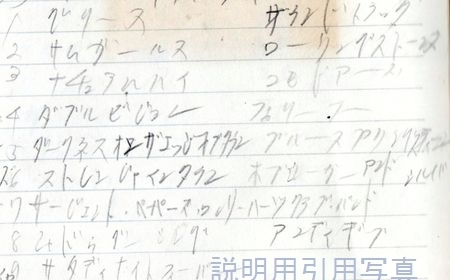 1 グリース サウンドトラック
2 サムガールス ローリングストーンズ
3 ナチュラルハイ コモドアーズ
4 ダブルビジョン フォリナー
5 ダークネスオンザエッジオブタウン ブルーススプリングスティーン
6 ストレンジャインタウン ボブシーガーアンド
7 サージェント・ペパーズ・ロンリーハーツクラブバンド
8 アンディギブ
9 サタデイナイト
説明用引用写真